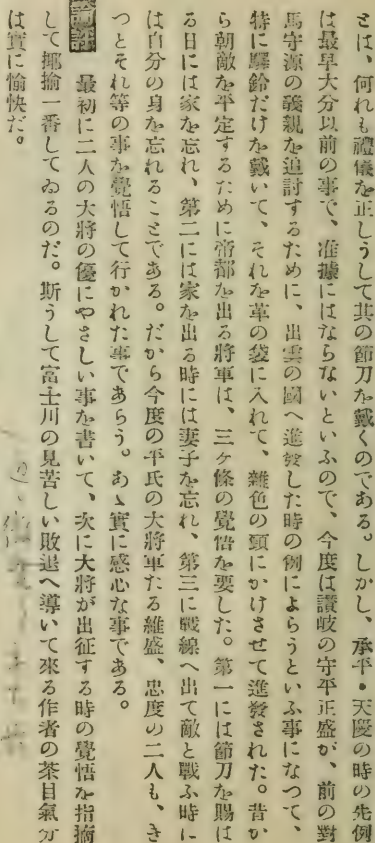 とは、何れも禮儀を正しうして其の節刀を戴くのである。しかし、承平・天慶の時の先例
は最早大分以前の事で、准據にはならないといふので、今度は讃岐の守平正盛が、前の對
馬守源の義親を追討するために、出雲の國へ進發した時の例によらうといふ事になつて、
特に驛鈴だけを戴いて、それを革の袋に入れて、雜色の頸にかけさせて進發された。昔か
ら朝敵を平定するために帝都を出る將軍は、三ヶ條の覺悟を要した。第一には節刀を賜は
る日には家を忘れ、第二には家を出る時には妻子を忘れ、第三に戰線へ出て敵と戰ふ時に
は自分の身を忘れることである。だから今度の平氏の大將軍たる維盛、忠度の二人も、き
つとそれ等の事を覺悟して行かれた事であらう。あゝ實に感心な事である。
論評 最初に二人の大將の優にやさしい事を書いて、次に大將が出征する時の覺悟を指摘
して揶揄一番してゐるのだ。斯うして富士川の見苦しい敗退へ導いて來る作者の茶目氣分
は實に愉快だ。